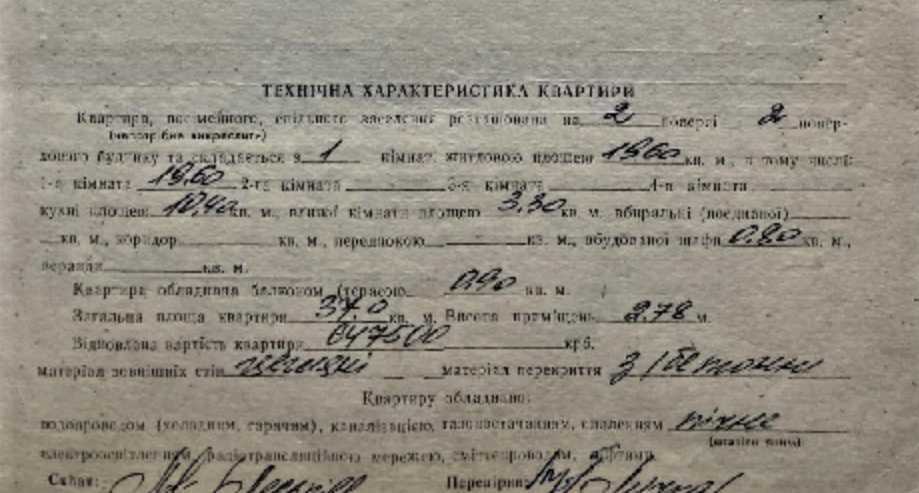 ТЕХНІЧНА ХАРАКТЕРИСТИКА КВАРТИРИ
Квартира, посімейного, спільного заселення розташована на 2 поверсі 2 повер-
(непотрібне викреслити)
хового будинку та складається з 1 кімнат житловою площею 19.60 кв. м., в тому числі:
1-а кімната 19.60 2-га кімната 3-я кімната 4-а кімната
кухні площею 10.40 кв. м., ванної кімнати площею 3.30 кв. м. вбиральні (поєднаної)
кв. м., коридор кв. м., передпокою кв. м., вбудованої шафи 0.80 кв. м.,
веранди кв. м.
Квартира обладнана балконом (терасою 0.90 кв. м.
Загальна площа квартири 37.0 кв. м. Висота приміщень 2.78 м.
Відновлена вартість квартири 647500 крб.
матеріал зовнішніх стін матеріал перекриття з/бетонні
Квартиру обладнано:
водопроводом (холодним, гарячим), каналізацією, газопостачанням, опаленням пічне
електроосвітленням, радіотрансляційною мережею, сміттєпроводом, ліфтами
Склав: Перевірив: